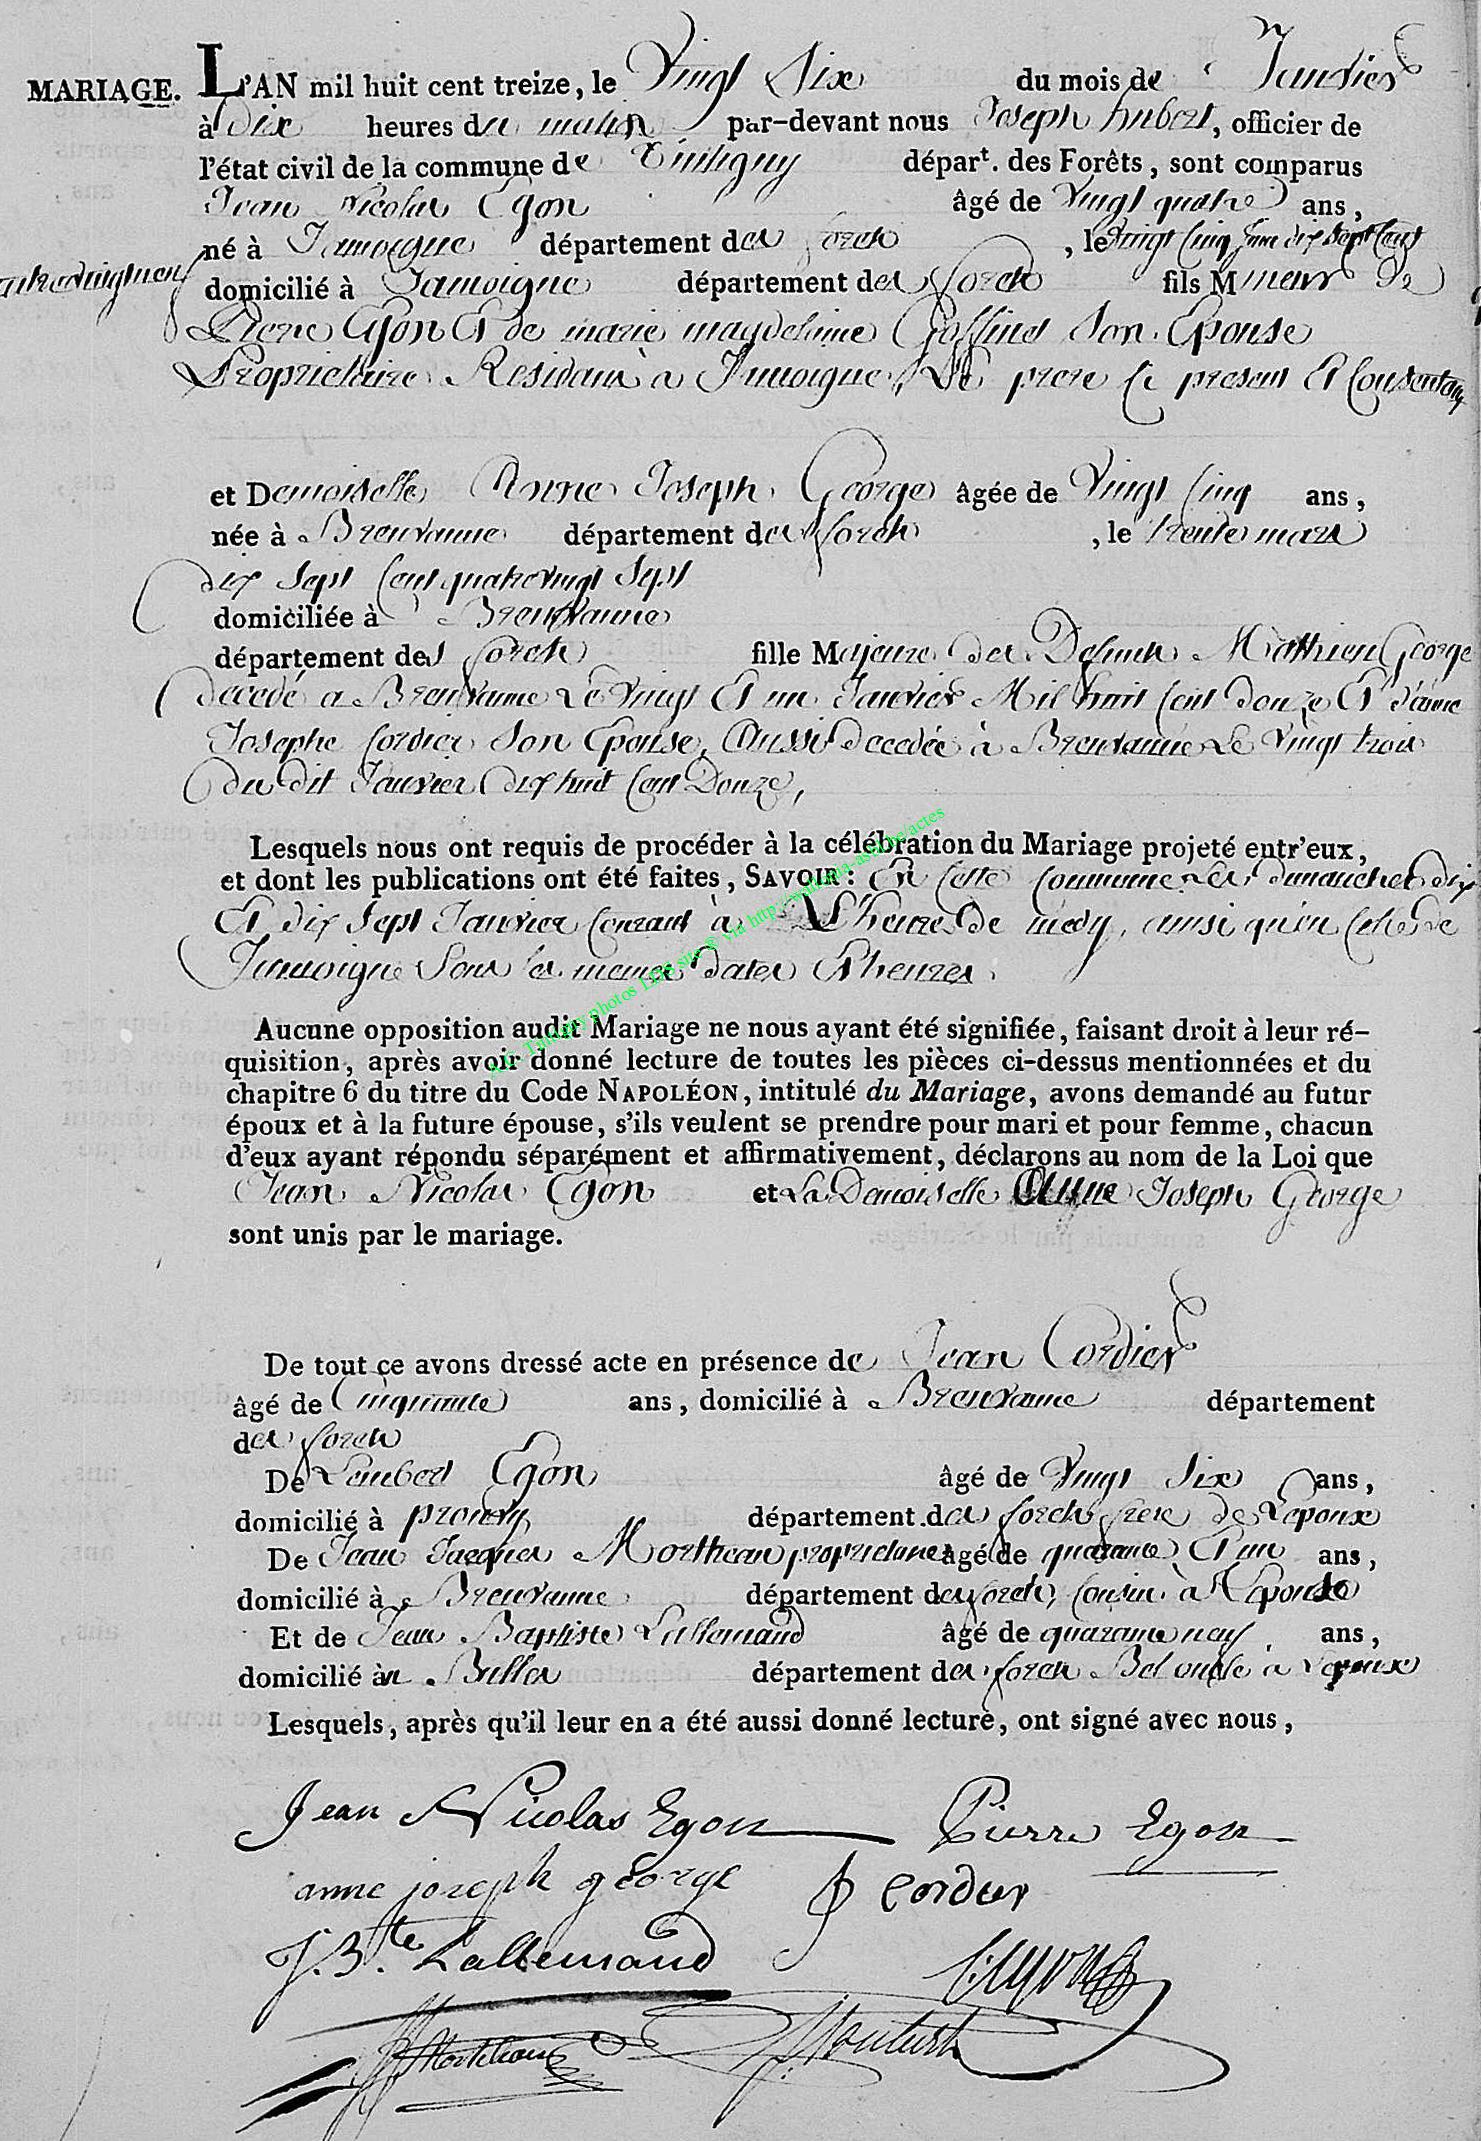 MARIAGE. L'AN mil huit cent treize, le Vingt Six du mois de Janvier
à Dix heures du matin par-devant nous Joseph hubert, officier de
l'état civil de la commune de Tintigny départ. des Forêts, sont comparus
Jean Nicolas Egon âgé de Vingt quatre ans,
né à Jamoigne département des forets, le Vingt Cinq June dix Sept Cent
quatrevingtneuf
domicilié à Jamoigne département des forets fils Mineur De
Pierre Egon Et de marie magdelaine Goffinet Son Epouse
Proprietaire Residant à Jamoigne, Le present Et Consentant
et Demoiselle Anne Joseph George âgée de Vingt Cinq ans,
née à Breuvanne département des forets, le trente mars
dix Sept Cent quatrevingt Sept
domiciliée à Breuvanne
département des forets fille Majeure des Defunts Mathieu George
decedé a Breuvanne Le Vingt Et un Janvier Mil huit Cent Douze Et d'anne
Josephe Cordier Son Epouse, Aussi Decedée à Breuvanne Le Vingt trois
du dit Janvier dix huit Cent Douze,
Lesquels nous ont requis de procéder à la célébration du Mariage projeté entr'eux,
et dont les publications ont été faites, SAVOIR : En Cette Commune Les dimanches dix
Et dix Sept Janvier Courant à L'heure De midy, ainsi qu'en Celle De
Jamoigne Sous les memes dates Et heures.
Aucune opposition audit Mariage ne nous ayant été signifiée, faisant droit à leur ré-
quisition, après avoir donné lecture de toutes les pièces ci-dessus mentionnées et du
chapitre 6 du titre du Code NAPOLÉON, intitulé du Mariage, avons demandé au futur
époux et à la future épouse, s'ils veulent se prendre pour mari et pour femme, chacun
d'eux ayant répondu séparément et affirmativement, déclarons au nom de la Loi que
Jean Nicolas Egon et La Demoiselle Anne Joseph George
sont unis par le mariage.
De tout ce avons dressé acte en présence de Jean Cordier
âgé de Cinquante ans, domicilié à Breuvanne département
des forets
De Lambert Egon âgé de Vingt Six ans,
domicilié à prouvy département des forets frere de L'epoux
De Jean Jacques Mortheau proprietaire âgé de quarante Et un ans,
domicilié à Breuvanne département des forets, Cousin à L'Epouse
Et de Jean Baptiste Lallemand âgé de quarante neuf ans,
domicilié à Bellefa département des forets Bel oncle à L'epoux
Lesquels, après qu'il leur en a été aussi donné lecture, ont signé avec nous,
Jean Nicolas Egon Pierre Egon
anne joseph george J Cordier
J. Bte. Lallemand
Mortheau
A.C. Tintigny photos LDS site ® via http://wallonia-asbl.be/actes